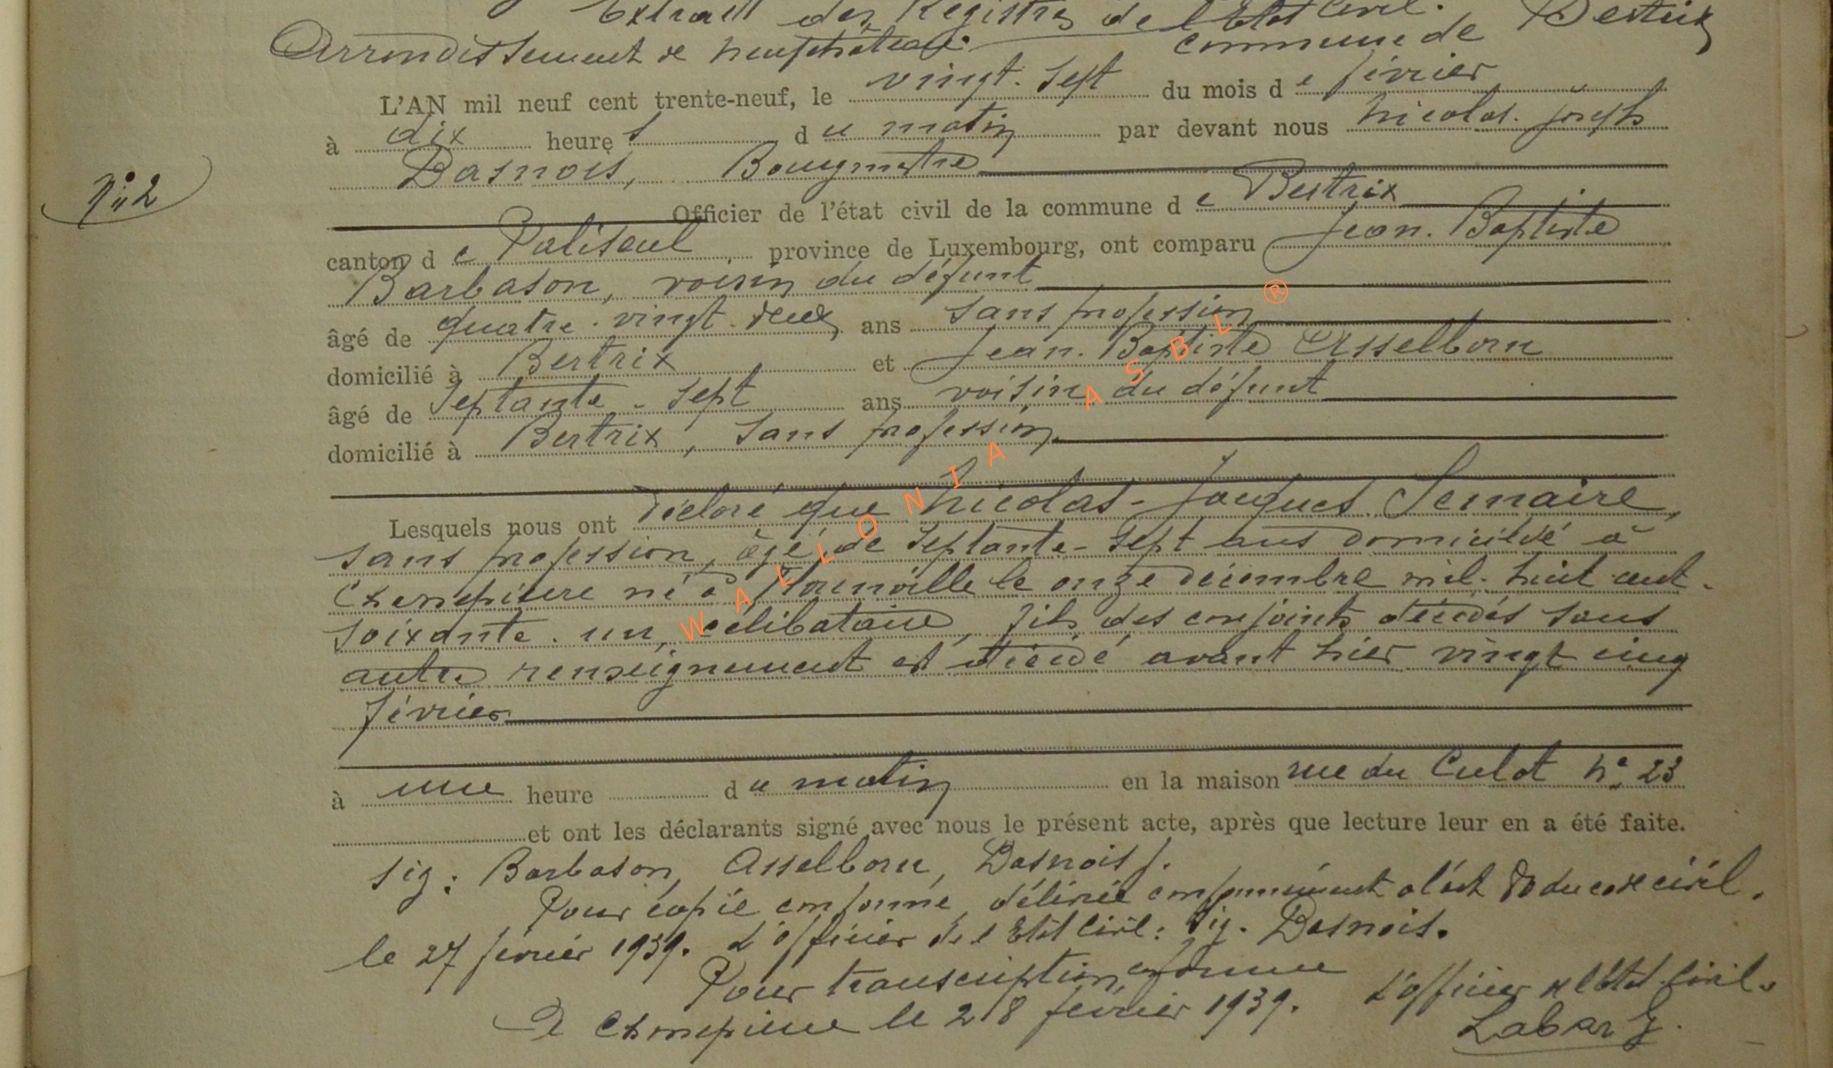 Extrait des Registres de l'Etat Civil.
Arrondissement de Neufchâteau. commune de Bertrix
L'AN mil neuf cent trente-neuf, le vingt-sept du mois de février
à dix heures du matin par devant nous Nicolas-Joseph
N° 2
Dasnois, Bourgmestre
Officier de l'état civil de la commune de Bertrix
canton de Paliseul province de Luxembourg, ont comparu Jean-Baptiste
Barbason, voisin du défunt
âgé de quatre-vingt-deux ans sans profession
domicilié à Bertrix et Jean-Baptiste Asselborn
âgé de septante-sept ans voisin du défunt
domicilié à Bertrix, sans profession
Lesquels nous ont déclaré que Nicolas-Jacques Semaire,
sans profession, âgé de septante-sept ans domicilié à
né à le onze décembre mil-huit cent-
soixante-un, célibataire, fils des conjoints décédés sans
autre renseignement est décédé avant hier vingt cinq
février
à une heure du matin en la maison rue du Culot N° 23
et ont les déclarants signé avec nous le présent acte, après que lecture leur en a été faite.
sig: Barbason, Asselborn, Dasnois J.
Pour copie conforme délivrée conformément à l'art 80 du code civil.
le 27 février 1939. L'officier de l'Etat Civil: sig. Dasnois.
Pour transcription conforme
le 28 février 1939. L'officier de l'Etat Civil.
Labar G.
WALLONIA ASBL ®